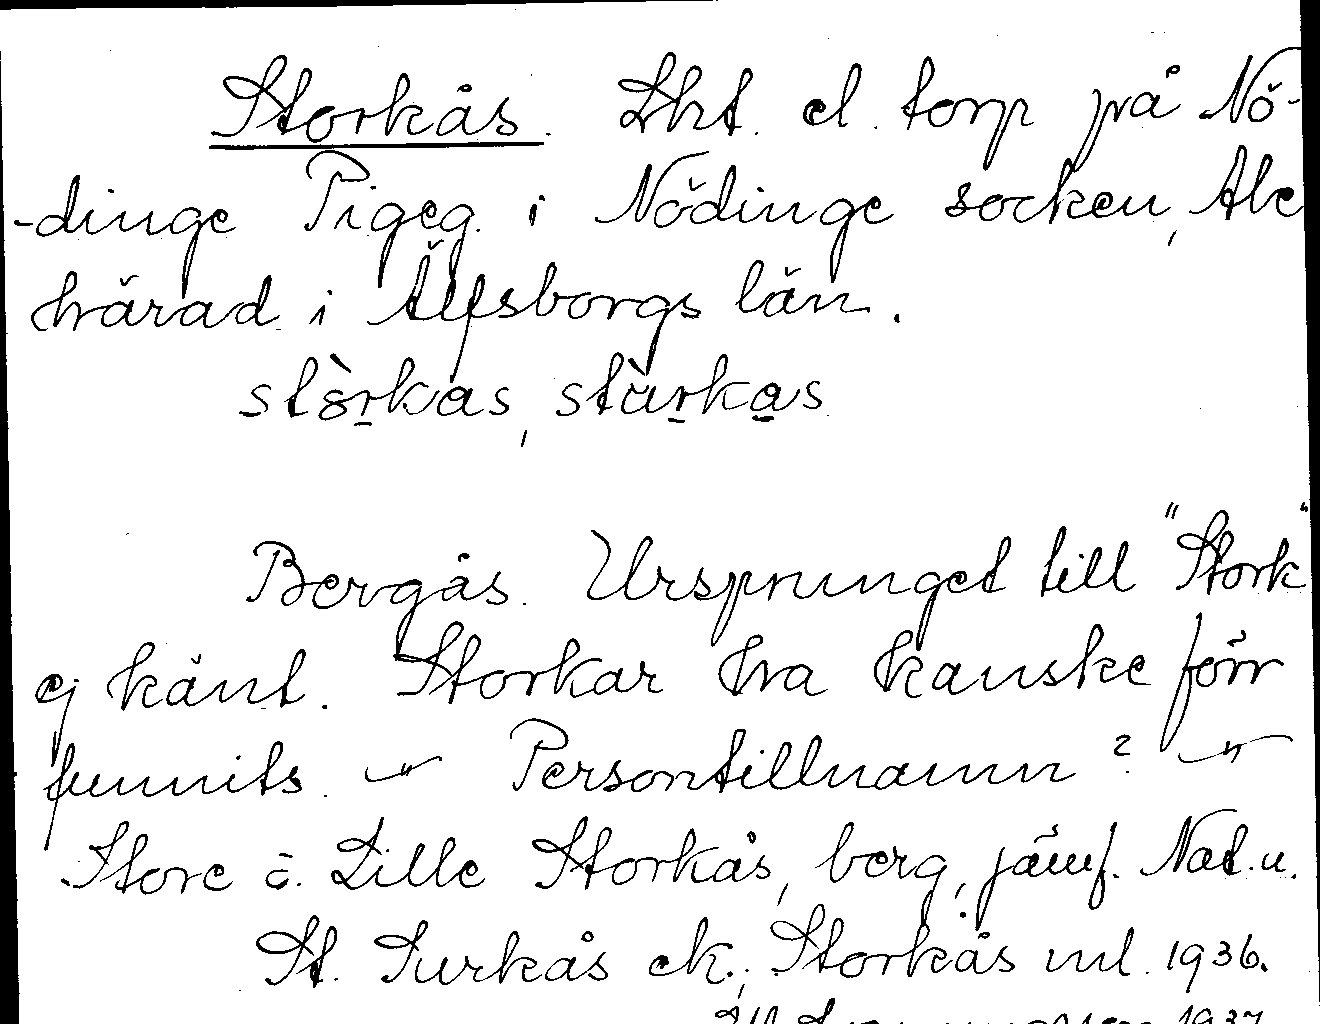 Storkås. Lht. el. torp på Nö-
-dinge Prgeg. i Nödinge socken, Ale
härad i Älfsborgs län.
stòrkas, stùrkas
Bergås. Ursprunget till "Stork"
ej känt. Storkar ha kanske förr
funnits. –"– Persontillnamn? –"–
Store o. Lille Storkås, berg, jämf. Nat.n.
St. Turkås ek.; Storkås ml. 1936.
1937